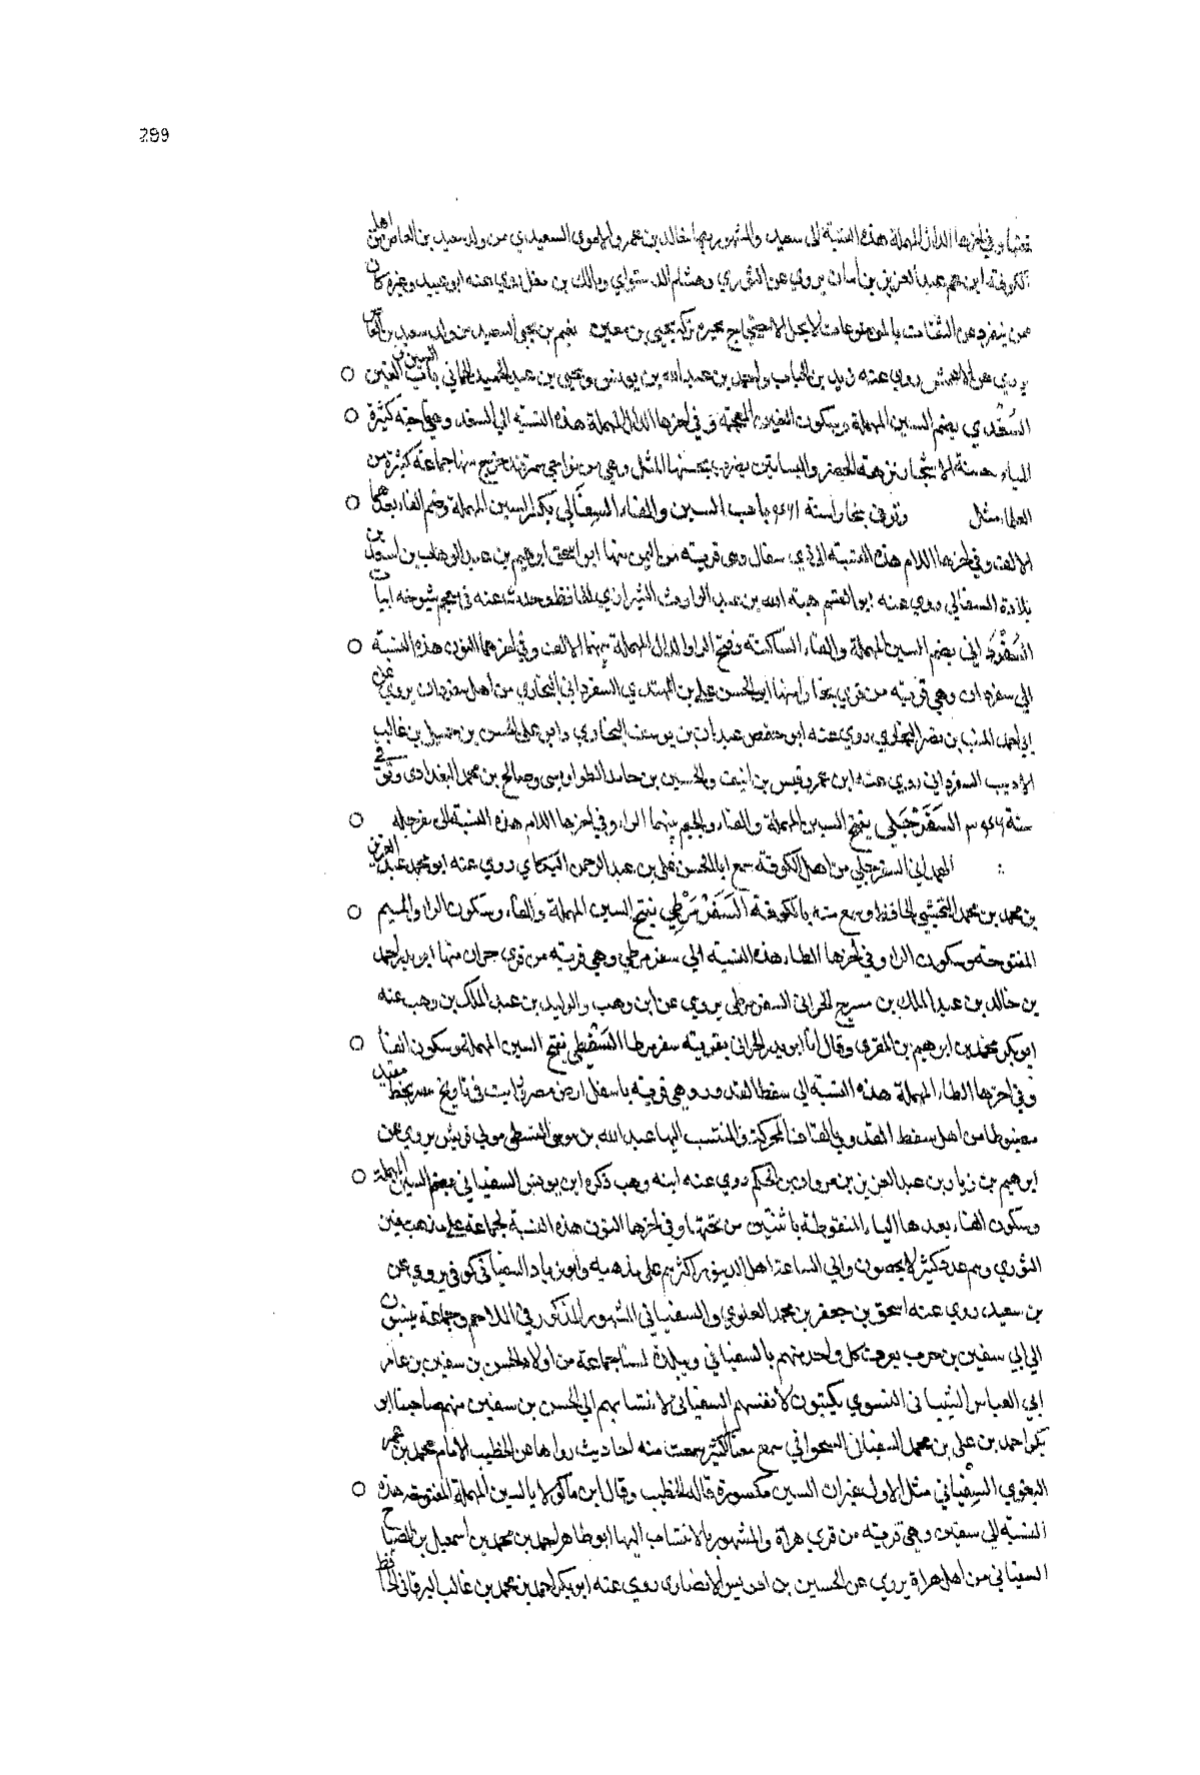 299
وفي اخرها الدال المهملة هذه النسبة الى سعيد والمشهور بها خالد بن عمرو الاموي السعيدي من ولد سعيد بن العاص من اهل
الكوفة ابن عم عبد العزيز بن ابان يروي عن الثوري وهشام الدستواي ومالك بن مغل روي عنه ابو عبيد وغيره كان
ممن ينفرد عن الثقات بالموضوعات لا يحل الاحتجاج بخبره تركه يحيى بن معين نعيم بن يحيى السعيدي من ولد سعيد بن العاص
يروي عن الاعمش روي عنه زيد بن الحباب واحمد بن عبد الله بن يونس ويحيى بن عبد الحميد الحماني باب السين والغين
السُغْدي بضم السين المهملة وسكون الغين المعجمة وفي اخرها الدال المهملة هذه النسبة الي السغد وهي كثيرة
المياه حسنة الاشجار نزهة الخضر والبساتين يضرب بحسنها المثل وهي من نواحي سمرقند خرج منها جماعة كثيرة من
العلما مثل وتوفي ببخارا سنة باب السين والفاء السِفَالي بكسر السين المهملة وضم الفاء بعدهما
الالف وفي اخرها اللام هذه النسبة الي ذي سفال وهي قرية من اليمن منها ابو اسحق ابرهيم بن عبد الوهاب بن اسعد بن
السفالي روي عنه ابو القسم هبة الله بن عبد الوارث الشيرازي الحافظ وحدث عنه في معجم شيوخه ابياتا
السُفْرَداني بضم السين المهملة والفاء الساكنة وفتح الرا والدال المهملة بينهما الالف وفي اخرهما النون هذه النسبة
الي سفردان وهي قرية من قري بخارا منها ابو الحسن علي بن المهتدي السفرداني البخاري من اهل سفردان يروي عن
بن نصر البخاري روي عنه ابو حفص عبدان بن يوسف البخاري وابو علي الحسن بن بن غالب
الاديب السفرداني روي عنه ابن عمرو قيس بن انيف والحسين بن حامد الطواويسي وصالح بن محمد البغدادي وتوفي في
سنة السَفَرْجَلي بفتح السين المهملة والفاء والجيم بينهما الراء وفي اخرها اللام هذه النسبة الى سفرجله
السفرجلي من اهل الكوفة سمع ابا الحسن علي بن عبد الرحمن البكاي روي عنه ابو محمد عبد العزيز
بن محمد بن محمد النخشبي الحافظ وسمع منه بالكوفة السَفَرْمَرْطي بفتح السين المهملة والفاء وسكون الرا والميم
المفتوحة وسكون الرا وفي اخرها الطاء هذه النسبة الي سفرمرطي وهي قرية من قرى حران منها ابو بدر احمد
بن خالد بن عبد الملك بن مسرح الحراني السفرمرطي يروي عن ابن وهب والوليد بن عبد الملك بن وهب عنه
ابو بكر محمد بن ابرهيم بن المقري وقال انا ابو بدر الحراني بقرية سفرمرطا السَفْطي بفتح السين المهملة وسكون الفاء
وفي اخرها الطاء المهملة هذه النسبة الي سفط القدور وهي قرية باسفل ارض مصر رايت في تاريخ مصر بخط مقيد
مضبوطا من اهل سفط القدور بالقاف المحركة والمنتسب اليها عبد الله بن موسى السفطي مولي قريش يروي عن
ابرهيم بن زياد بن عبد العزيز بن مروان بن الحكم روي عنه ابنه وهب ذكره ابن يونس السفياني بضم السين المهملة
وسكون الفاء بعدها الياء المنقوطة باثنتين من تحتها وفي اخرها النون هذه النسبة لجماعة علي مذهب سفين
الثوري وهم عدد كثير لا يحصون والي الساعة اهل الدينور اكثرهم على مذهبه وابو زياد السفياني كوفي يروي عن
بن سعيد روي عنه اسحق بن جعفر بن محمد العلوي والسفياني المشهور المذكور في الملاحم وجماعة ينسبون
الي ابي سفين بن حرب يعرف كل واحد منهم بالسفياني وببلدة نسا جماعة من اولاد الحسن بن سفين بن عامر
ابي العباس الشيباني النسوي يكتبون لانفسهم السفياني لانتسابهم الي الحسن بن سفين منهم صاحبنا ابو
بكر احمد بن علي بن محمد السفياني سمع معنا الكثير سمعت منه احاديث رواها عن الخطيب الامام محمد بن عمر
البغوي السِفْياني مثل الاول غير ان السين مكسورة قاله الخطيب وقال ابن ماكولا بالسين المهملة المفتوحة هذه
النسبة الي سفيان وهي قرية من قري هراة والمشهور بالانتساب اليها ابو طاهر احمد بن محمد بن اسمعيل بن الصباح
السفياني من اهل هراة يروي عن الحسين بن ادريس الانصاري روي عنه ابو بكر احمد بن محمد بن غالب البرقاني الحافظ